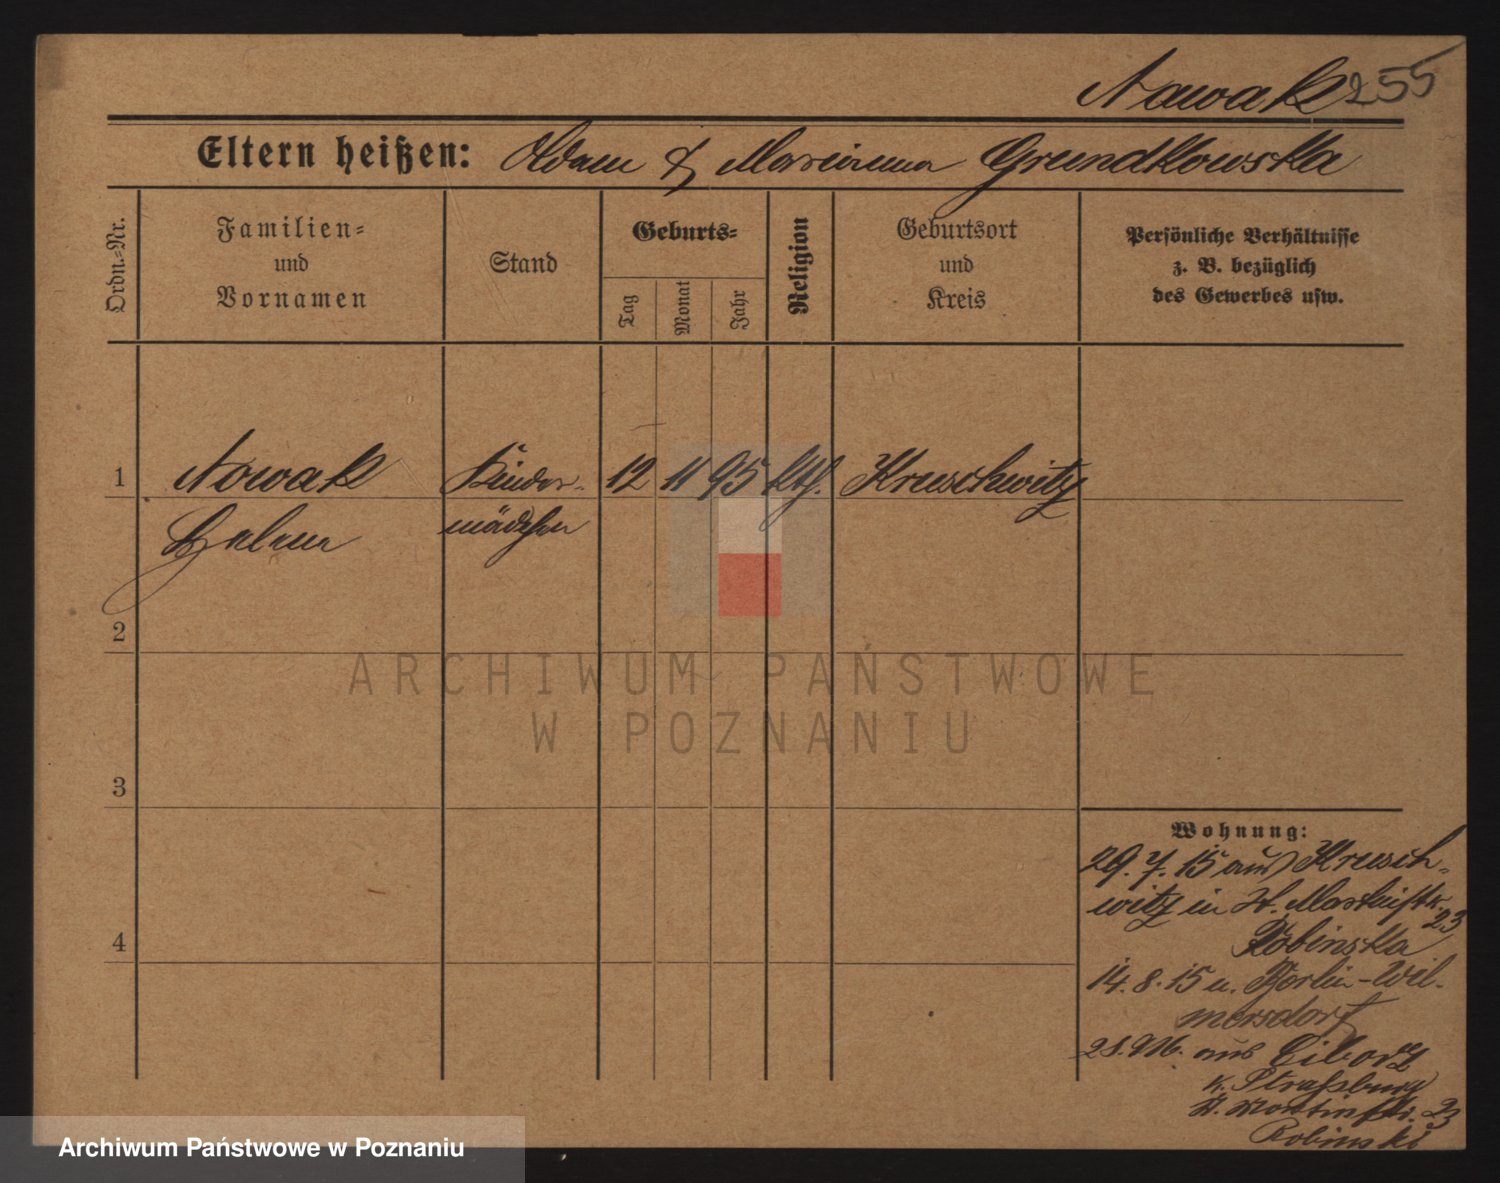 Nowak 255
Eltern heißen: Adam & Marianna Grundkowska
Ordn.-Nr.
Familien-
und
Vornamen
Stand
Geburts-
Tag
Monat
Jahr
Religion
Geburtsort
und
Kreis
Persönliche Verhältnisse
z. B. bezüglich
des Gewerbes usw.
1 Nowak Kinder- 12 11 95 kth. Kruschwitz
Helene mädchen
2
ARCHIWUM PAŃSTWOWE
W POZNANIU
3
4
Wohnung:
29. 7. 15 aus Krusch-
witz in St. Martinstr.
23
Robinska
14. 8. 15 n. Berlin-Wil-
mersdorf
28. 9 16. aus Ciborz
K. Straßburg
St. Martinstr. 23
Robinski
Archiwum Państwowe w Poznaniu